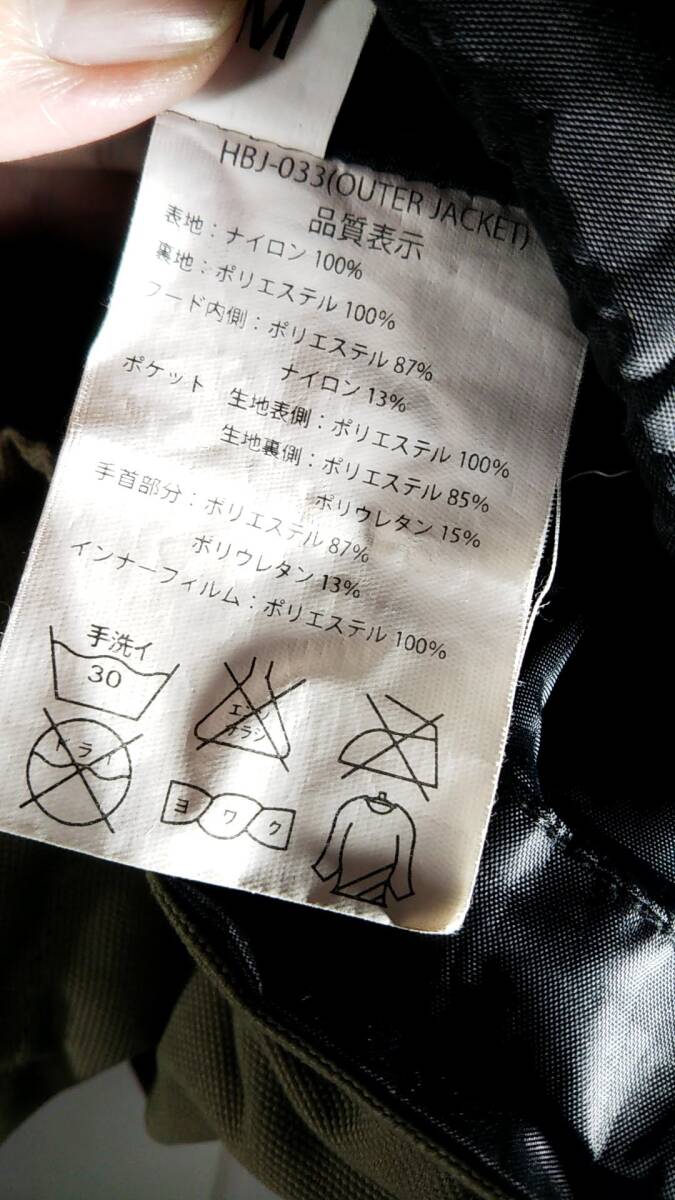 M
HBJ-033(OUTER JACKET)
品質表示
表地：ナイロン 100%
裏地：ポリエステル 100%
フード内側：ポリエステル 87%
ナイロン 13%
ポケット 生地表側：ポリエステル 100%
生地裏側：ポリエステル 85%
ポリウレタン 15%
手首部分：ポリエステル 87%
ポリウレタン 13%
インナーフィルム：ポリエステル 100%
手洗イ
30
エンソサラシ
ドライ
ヨワク